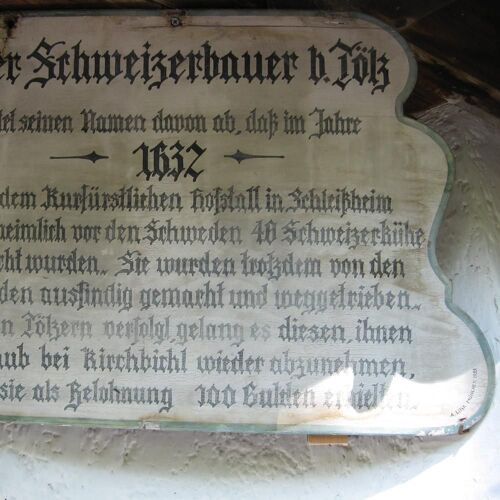 er Schweizerbauer b. Tölz
tel seinen Namen davon ab, daß im Jahre
1632
dem Kurfürstlichen Hofstall in Schleißheim
heimlich vor den Schweden 40 Schweizerkühe
cht wurden. Sie wurden trotzdem von den
den ausfindig gemacht und weggetrieben.
n Tölzern verfolgt, gelang es diesen, ihnen
aub bei Kirchbichl wieder abzunehmen,
sie als Belohnung 100 Gulden erhielten.